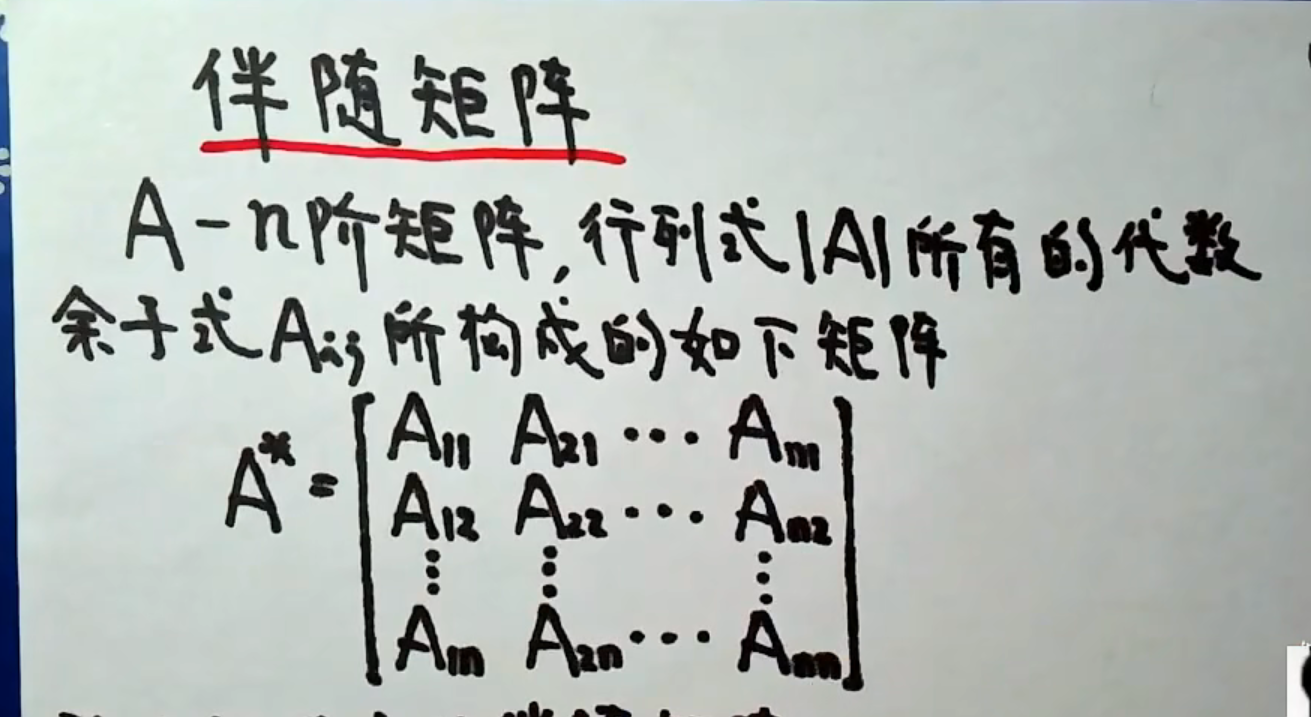 伴随矩阵
A-n阶矩阵,行列式|A|所有的代数
余子式Aij所构成的如下矩阵
A* = [A11 A21 ··· An1
A12 A22 ··· An2
⋮ ⋮ ⋮
A1n A2n ··· Ann]